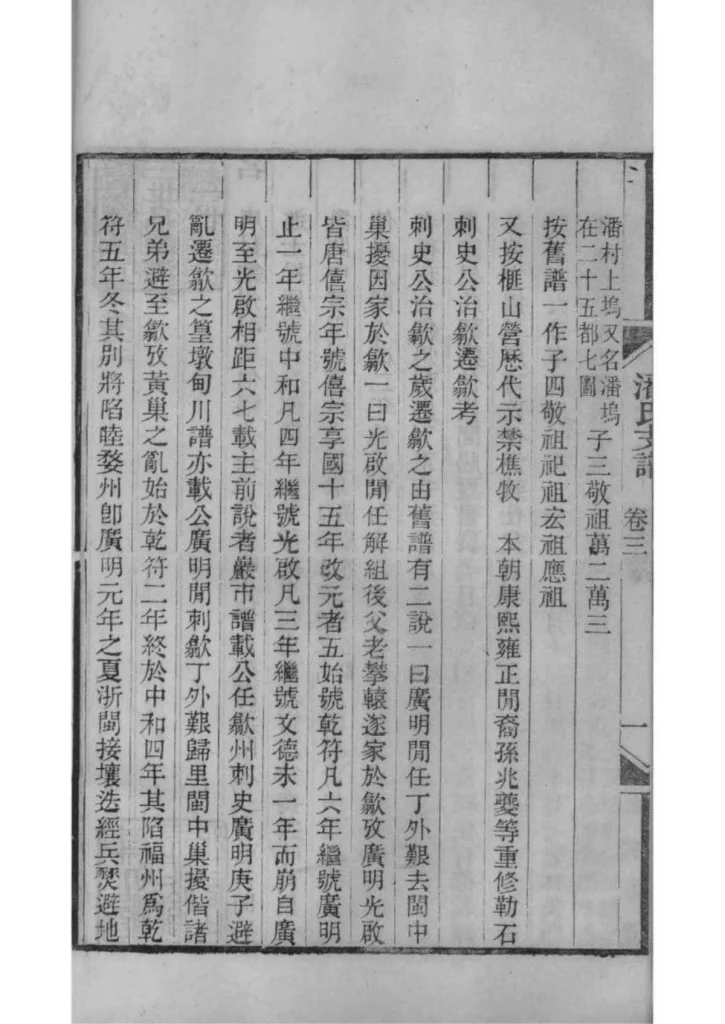 潘氏支譜 卷三 一
潘村上塢又名潘塢
在二十五都七圖
子三敬祖萬二萬三
按舊譜一作子四敬祖祀祖宏祖應祖
又按榧山營歷代示禁樵牧 本朝康熙雍正閒裔孫兆夔等重修勒石
刺史公治歙遷歙考
刺史公治歙之歲遷歙之由舊譜有二說一曰廣明閒任丁外艱去閩中
巢擾因家於歙一曰光啟閒任解組後父老攀轅遂家於歙攷廣明光啟
皆唐僖宗年號僖宗享國十五年改元者五始號乾符凡六年繼號廣明
止一年繼號中和凡四年繼號光啟凡三年繼號文德未一年而崩自廣
明至光啟相距六七載主前說者巖市譜載公任歙州刺史廣明庚子避
亂遷歙之篁墩甸川譜亦載公廣明閒刺歙丁外艱歸里閩中巢擾偕諸
兄弟避至歙攷黃巢之亂始於乾符二年終於中和四年其陷福州爲乾
符五年冬其別將陷睦婺州卽廣明元年之夏浙閩接壤迭經兵燹避地